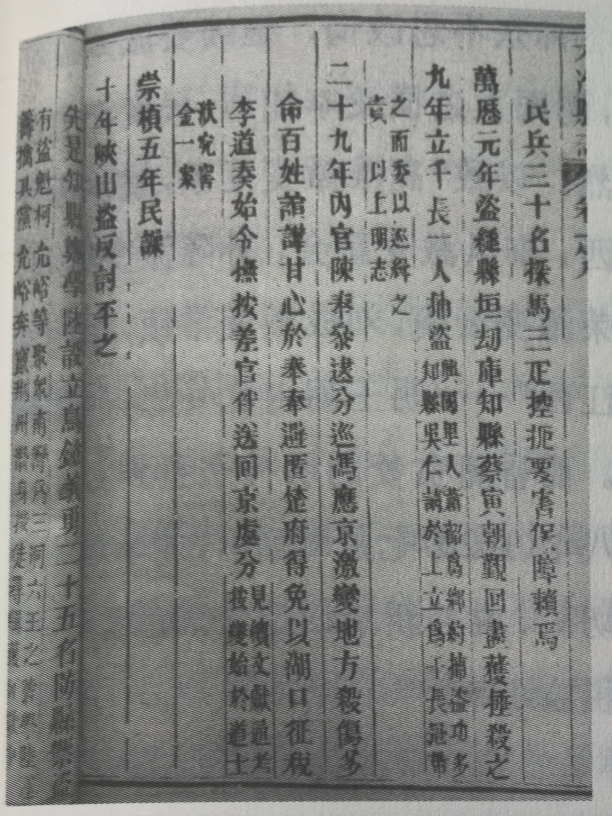 大冶縣志
民兵三十名探馬三疋控扼要害保障賴焉
萬曆元年盜縋縣垣刼庫知縣蔡寅朝覲回盡獲捶殺之
九年立千長一人捕盜興國里人蕭韶為鄉約捕盜功多
知縣吳仁請於上立為千長冠帶
之而委以巡緝之
責 以上明志
二十九年內官陳奉叅逮分巡馮應京激變地方殺傷多
命百姓譁甘心於奉奉避匿楚府得免以湖口征稅
李道奏始令撫按差官伴送回京處分見續文獻通考
按變始於道士
洑究窖
金一案
崇楨五年民譟
十年峽山盜反討平之
先是知縣學陞設立鳥銃教勇二十五名防縣禦盜
有盜魁柯允峪等聚眾南 為三洞六王之
擒其黨允峪奔竄荊州